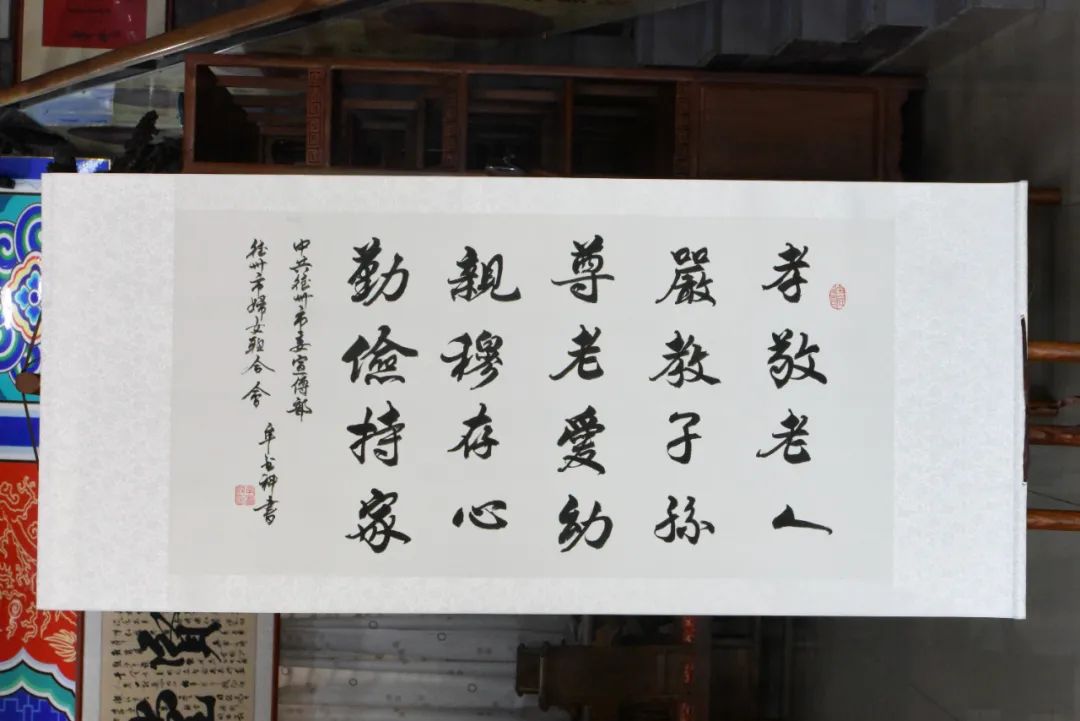 孝敬老人
嚴教子孫
尊老愛幼
親穆存心
勤儉持家
中共德州市委宣傳部
德州市婦女聯合會
書